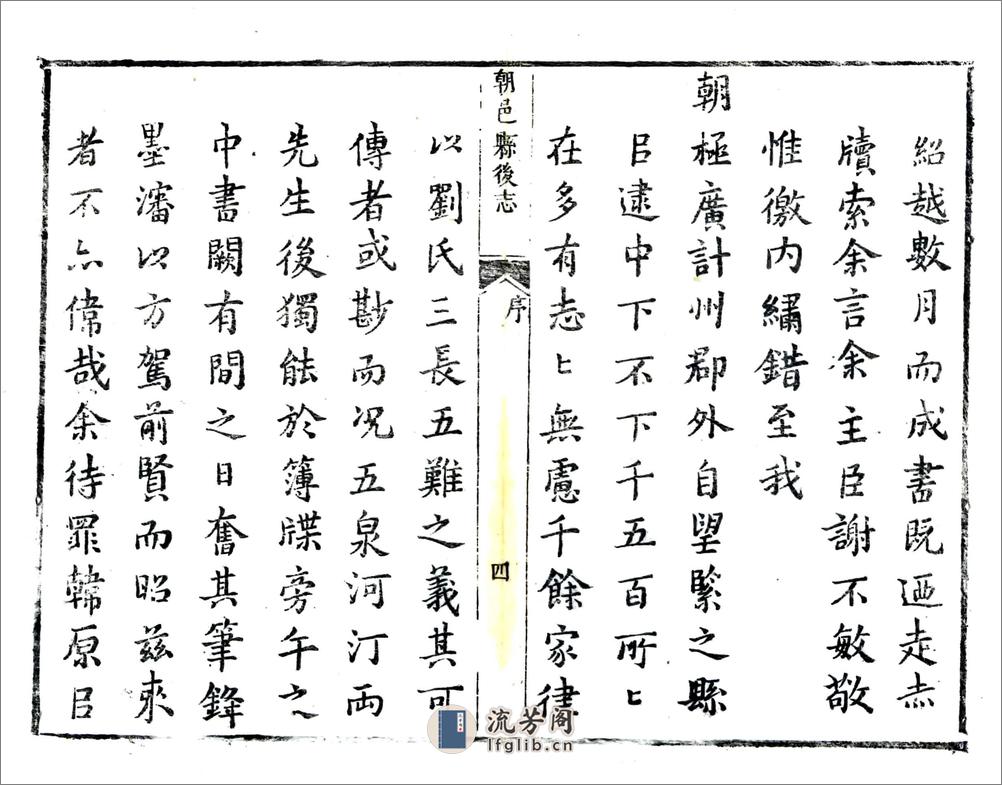 紹越數月而成書既迺走赤
牘索余言余主臣謝不敏敬
惟徼內繡錯至我
朝極廣計州郡外自望緊之縣
㠯逮中下不下千五百所〻
在多有志〻無慮千餘家律
朝邑縣後志
序
四
以劉氏三長五難之義其可
傳者或尠而况五泉河汀兩
先生後獨能於簿牒旁午之
中書闕有間之日奮其筆鋒
墨瀋以方駕前賢而昭茲來
者不亦偉哉余待罪韓原㠯
流芳阁
lfglib.cn